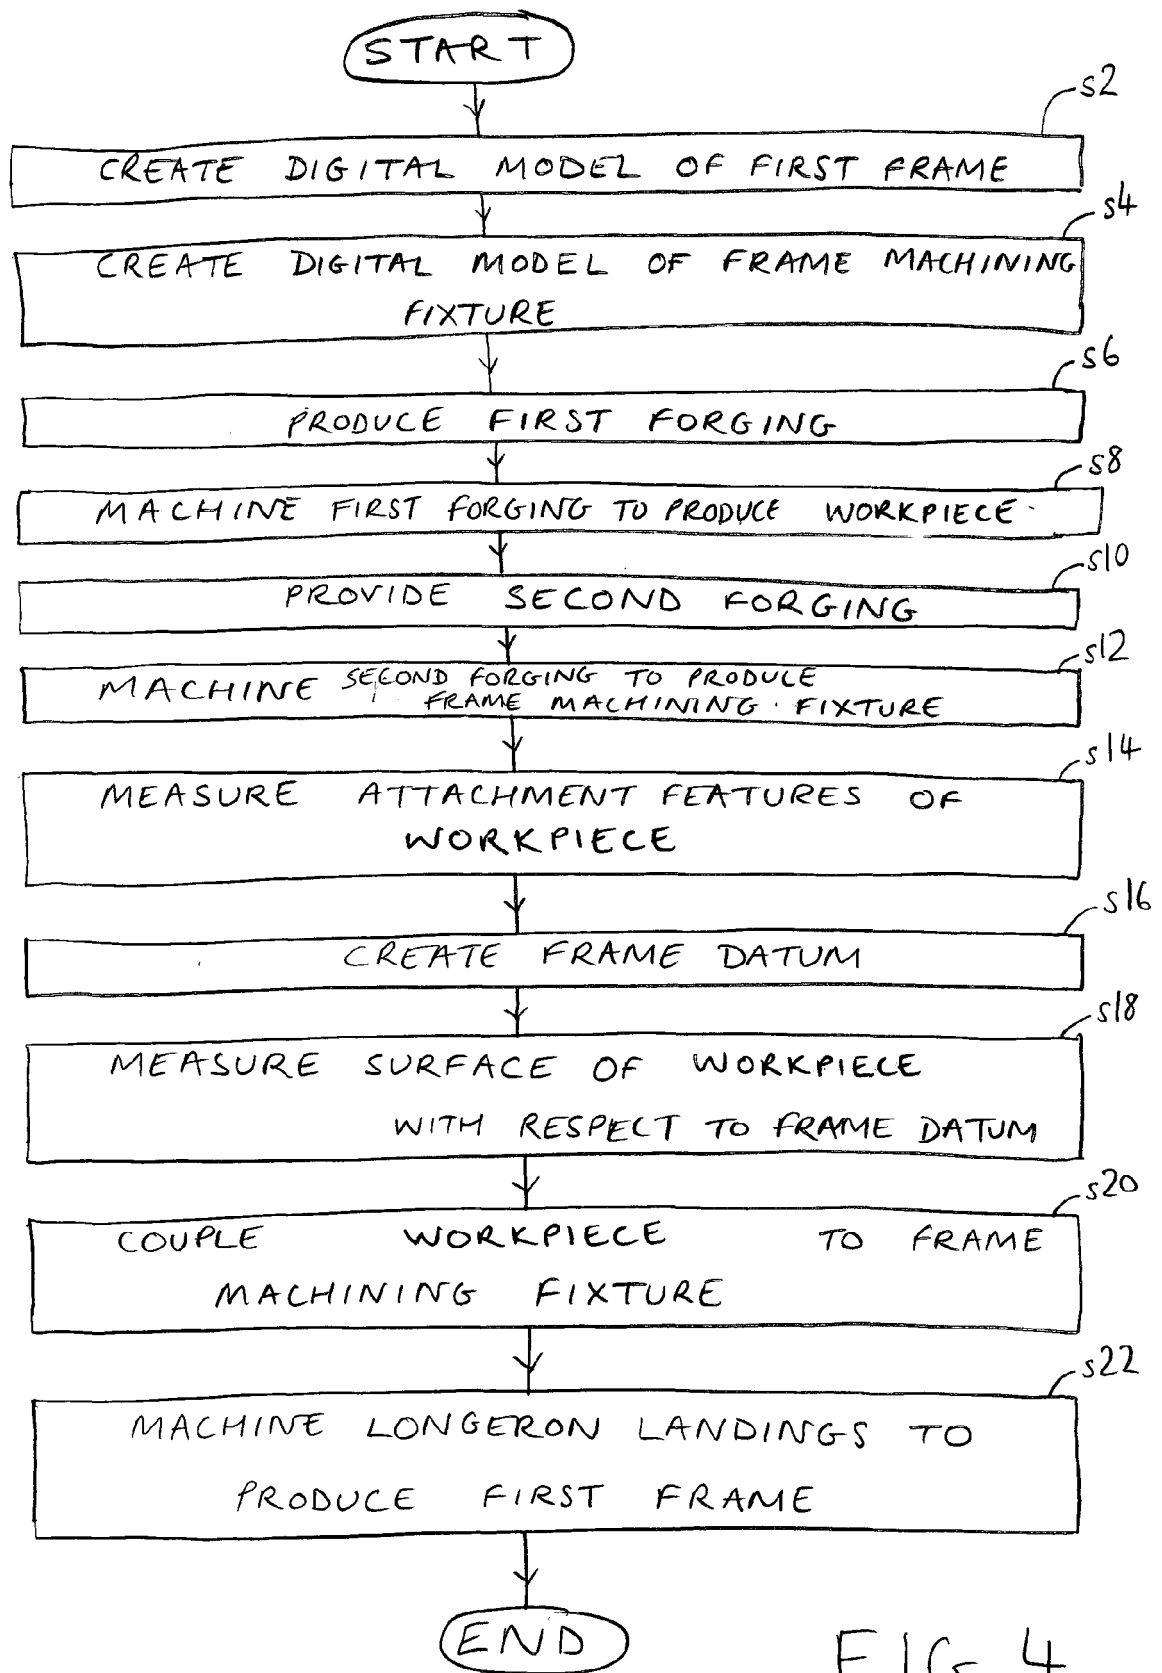 START
s2
CREATE DIGITAL MODEL OF FIRST FRAME
s4
CREATE DIGITAL MODEL OF FRAME MACHINING
FIXTURE
s6
PRODUCE FIRST FORGING
s8
MACHINE FIRST FORGING TO PRODUCE WORKPIECE
s10
PROVIDE SECOND FORGING
s12
MACHINE SECOND FORGING TO PRODUCE
FRAME MACHINING FIXTURE
s14
MEASURE ATTACHMENT FEATURES OF
WORKPIECE
s16
CREATE FRAME DATUM
s18
MEASURE SURFACE OF WORKPIECE
WITH RESPECT TO FRAME DATUM
s20
COUPLE WORKPIECE TO FRAME
MACHINING FIXTURE
s22
MACHINE LONGERON LANDINGS TO
PRODUCE FIRST FRAME
END
FIG 4